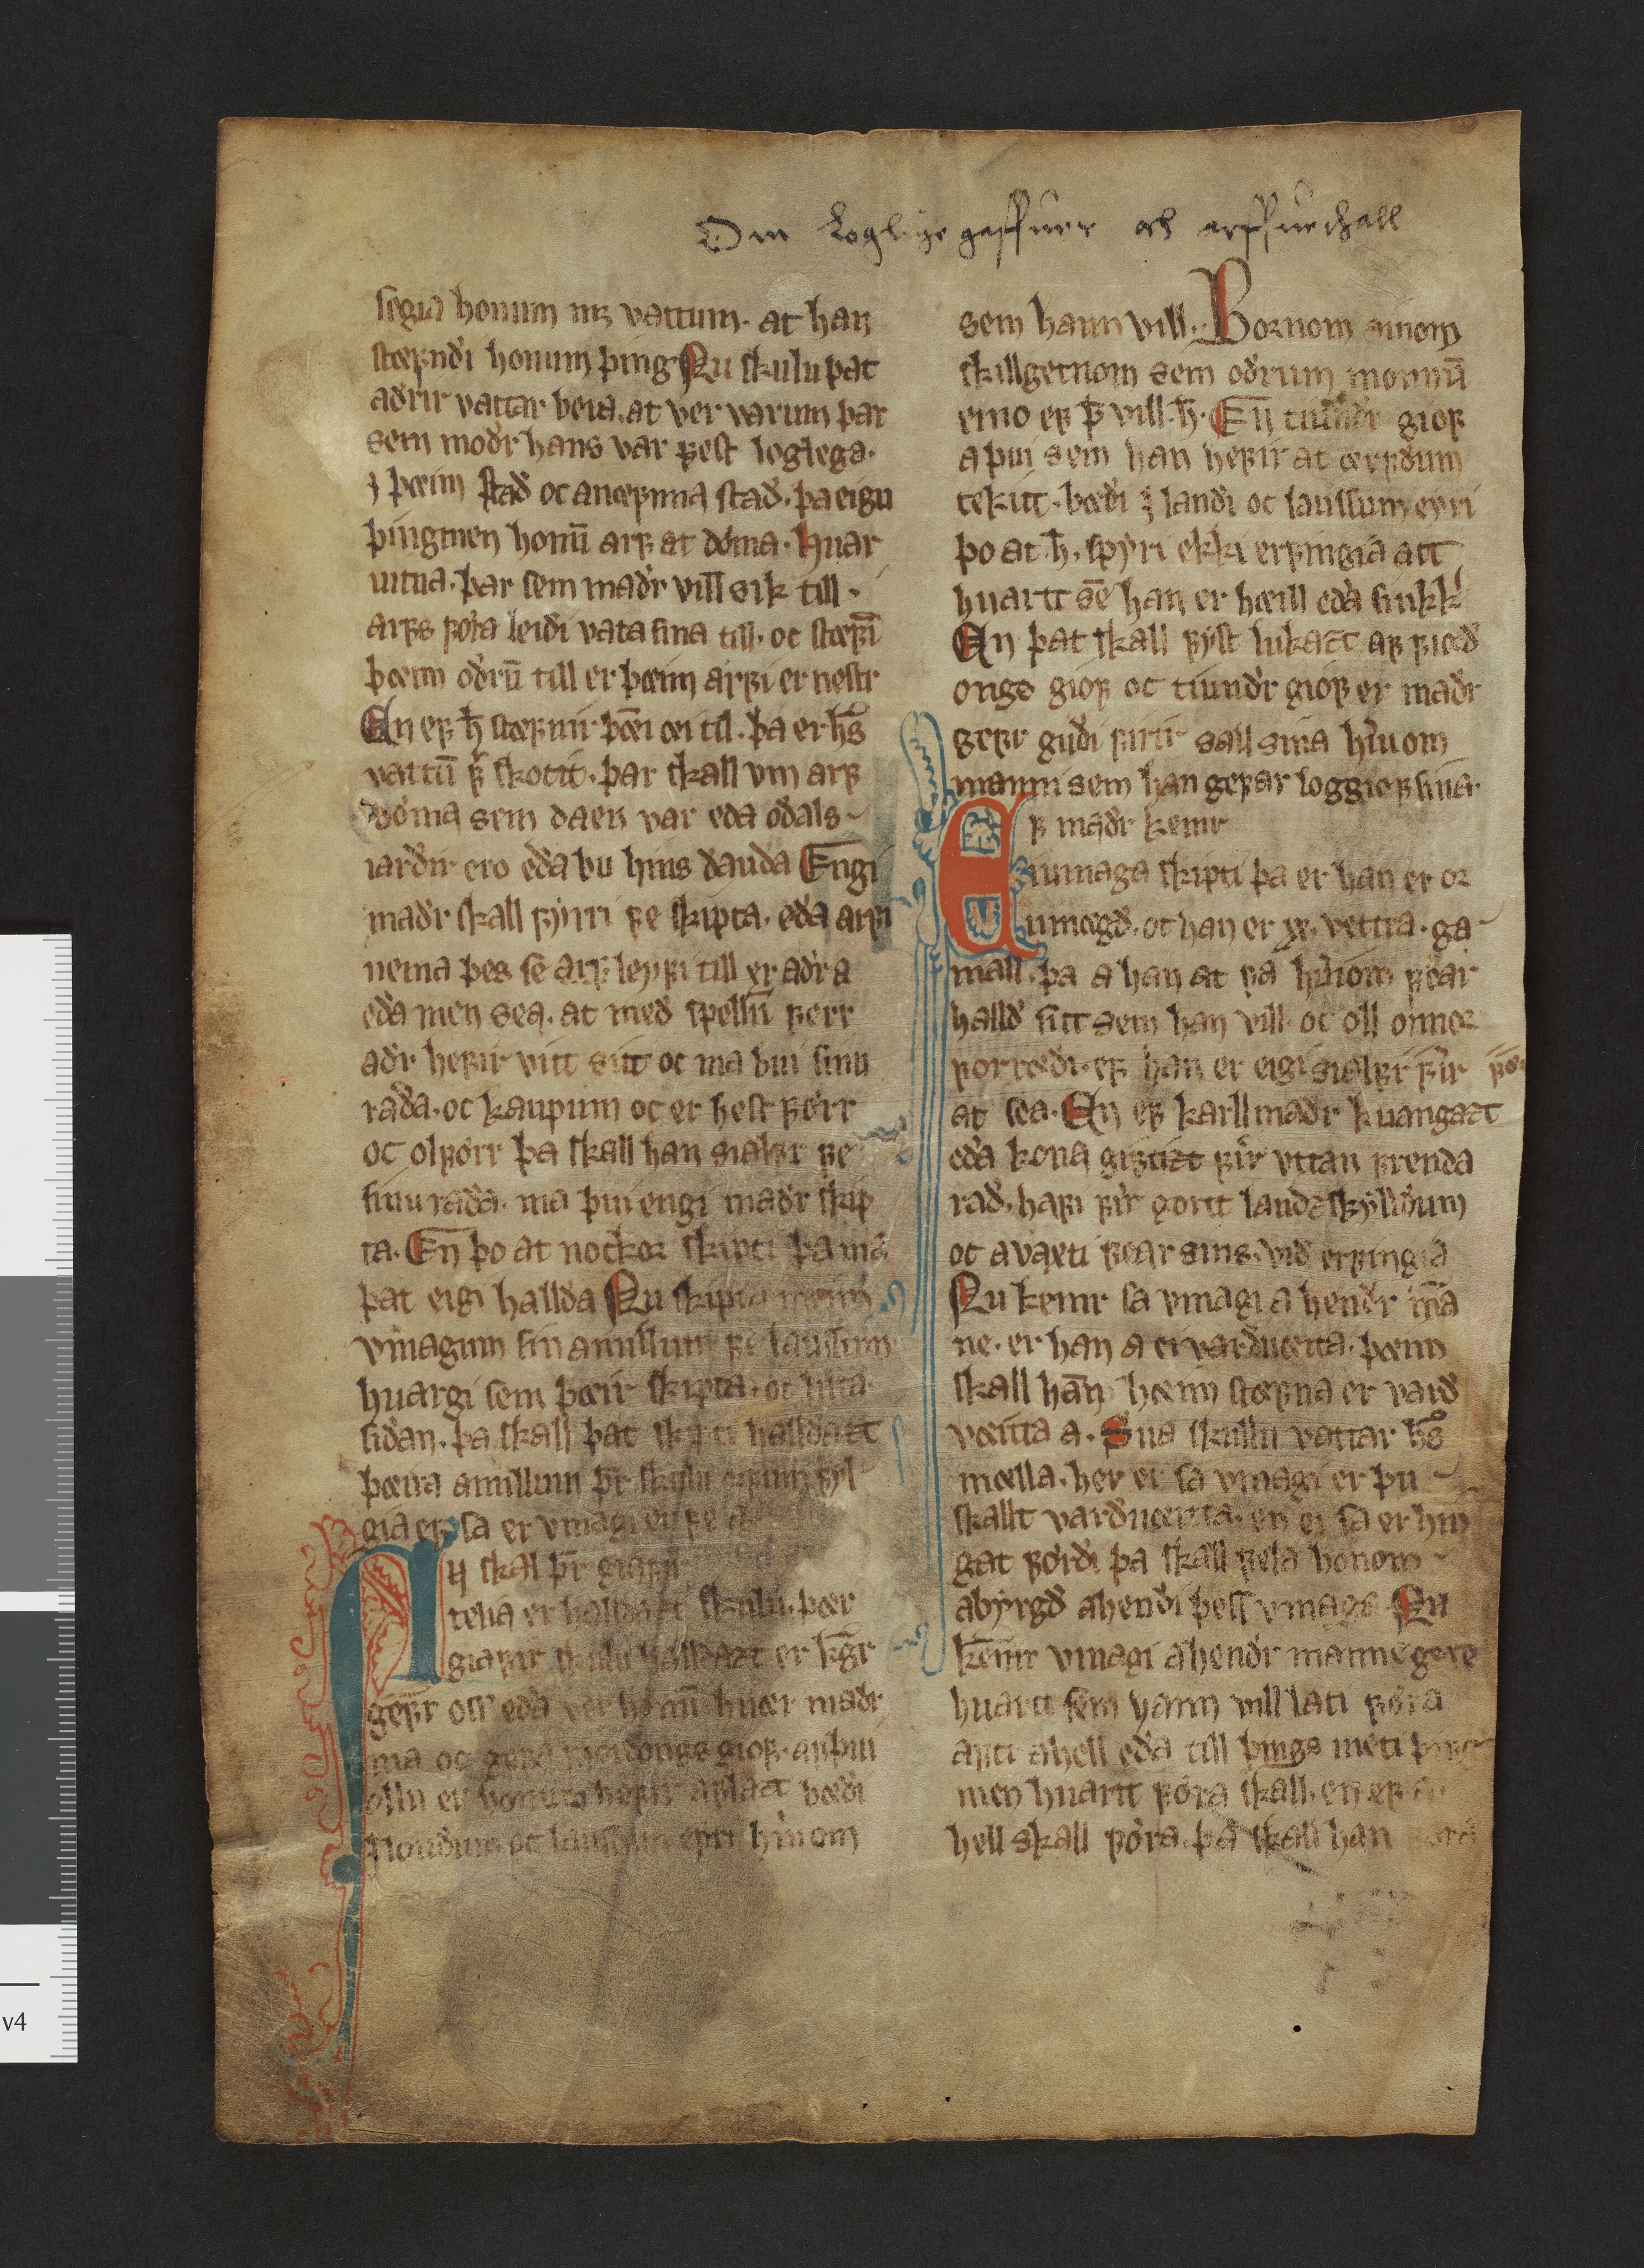 Om loglige gaffuer och arffueskall
segia honum mꝫ vattum. at han
stœfndi honum þing Nu skulu þat
adrir vattar bera. at ver varum þar
sem modr hans var fest loglega.
j þœim stad oc anœfnna stad. þa eigu
þingmen honū arf at dóma. Huar
uitna. þar sem madr vill sik till
arfs fóra leidi vata sina till. oc stœfī
þœim odrū till er þœim arfi er nestr
En ef h̄ stœfnir þœi œi til. þa er hs̄
vattū skotit. þar skall vm arf
dóma sem daen var eda odals
iardir ero eda bu hins dauda Engi
madr skall fyrri fe skipta. eda arfi
nema þes se arf leyfi till er adr a
eda men sea. at med spellū ferr
adr hefir vitt sitt oc ma þui sinu
rada. oc kaupum oc er hest fórr
oc olfórr þa skall han sialfr fe
sinu rada. ma þui engi madr skip
ta. En þo at nockor skipti þa ma
þat eigi hallda Nu skipta menn
vmagum sin amillum fe laussum
huargi sem þœir skipta. oc hita
sidan. þa skall þat skipti halldazt
þœira amillum þr̄ skulu omum fyl
gia ef sa er vmagi en fe
Nv skal þr̄ giafir
telia er halldazt skulu. þœr
giafir skulu halldazt er kḡr
gefr oss eda ver honū huœr madr
ma oc gefa fiordongs giof. af þui
ollu er honum hefir aflazt bœdi
jlondum oc laussum eyri hūiom
sem hann vill. Bornom sinom
skillgetnom sem odrum monnū
eino ef þ vill. h̄. En tiundr giof
a þui sem han hefir at œrfdum
tekitt. bœdi j landi oc laussum eyri
þo at. h̄. spyri ekki erfingia att
huartt sē han er hœill eda siukkr
En þat skall fyst lukazt af fiord
ongs giof oc tiundr giof er madr
gefr gudi firir sall sina hūiom
manni sem han gefar loggiof sina.
Ef madr kemr
jumaga skipti þa er han er or
umœgd. oc han er xv. vettra. ga
mall. þa a han at fa hūiom fear
halld sitt sem han vill oc oll onnor
forrœdi. ef han er eigi sialfr fir̄ fó
at sea. En ef karllmadr kuangazt
eda kona giftizt fir̄ vttan frenda
rad. hafi fir̄ gortt landzskylldum
oc avaxti fear sins. vid erfingia
Nu kemr sa vmagi a hendr ma
ne. er han a ei vardueita. þœim
skall han hœim stœfna er vard
vœitta a. Sua skullu vattar hō
mœlla. her er sa vmagi er þu
skallt vardueitta. en ei sa er hin
gat fórdi þa skall fela honom
abyrgd ahendi þess vmaga. Nu
kemr vmagi ahendr manne gere
huartt sem hann vill lati fóra
aftt ahell eda till þings meti þing
men huartt fóra skall. en ef a
hell skall fóra. þa skall han fóra